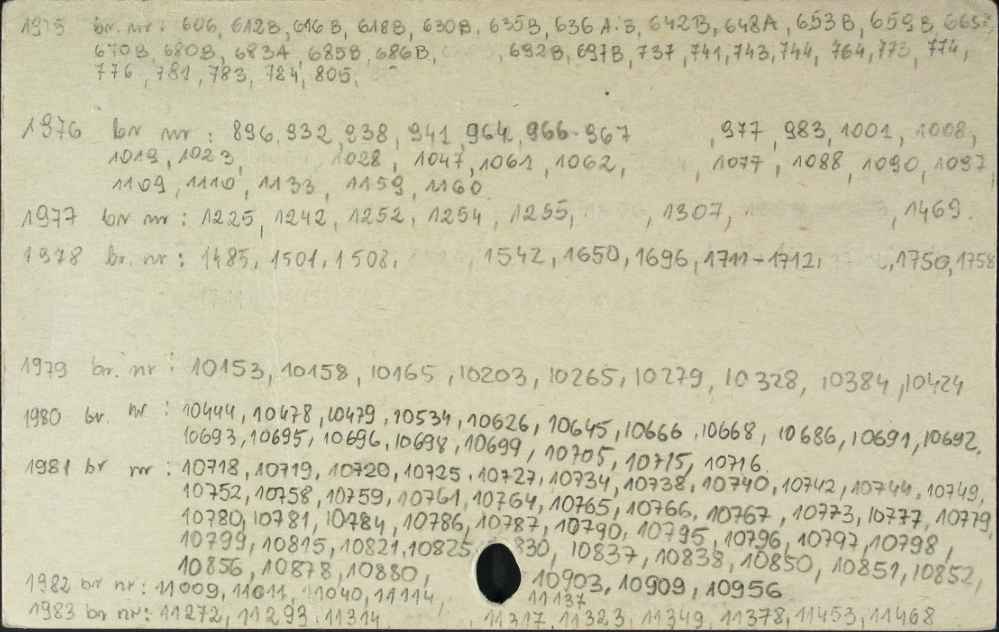 1975 br. nr: 606, 612B, 616B, 618B, 630B, 635B, 636 A:B, 642B, 648A, 653B, 659B,
670B, 680B, 683A, 685B, 686B, 692B, 697B, 737, 741, 743, 744, 764, 773, 774,
776, 781, 783, 784, 805,
1976 br nr: 896, 932, 938, 941, 964, 966-967, 977, 983, 1001, 1008,
1019, 1023, 1028, 1047, 1061, 1062, 1077, 1088, 1090, 1097,
1109, 1110, 1133, 1159, 1160
1977 br nr: 1225, 1242, 1252, 1254, 1255, , 1307, , 1469.
1978 br. nr: 1485, 1501, 1508, 1542, 1650, 1696, 1711-1712, ,1750, 1758
1979 br. nr: 10153, 10158, 10165, 10203, 10265, 10279, 10328, 10384, 10424
1980 br. nr: 10444, 10478, 10479, 10534, 10626, 10645, 10666, 10668, 10686, 10691, 10692,
10693, 10695, 10696, 10698, 10699, 10705, 10715, 10716.
1981 br nr: 10718, 10719, 10720, 10725, 10727, 10734, 10738, 10740, 10742, 10744, 10749,
10752, 10758, 10759, 10761, 10764, 10765, 10766, 10767, 10773, 10777, 10779,
10780, 10781, 10784, 10786, 10787, 10790, 10795, 10796, 10797, 10798,
10799, 10815, 10821, 10825, 830, 10837, 10838, 10850, 10851, 10852,
10856, 10878, 10880, 10903, 10909, 10956
1982 br nr: 11009, 11011, 11040, 11114, 11137
1983 br nr: 11272, 11293, 11314, 11317, 11323, 11349, 11378, 11453, 11468